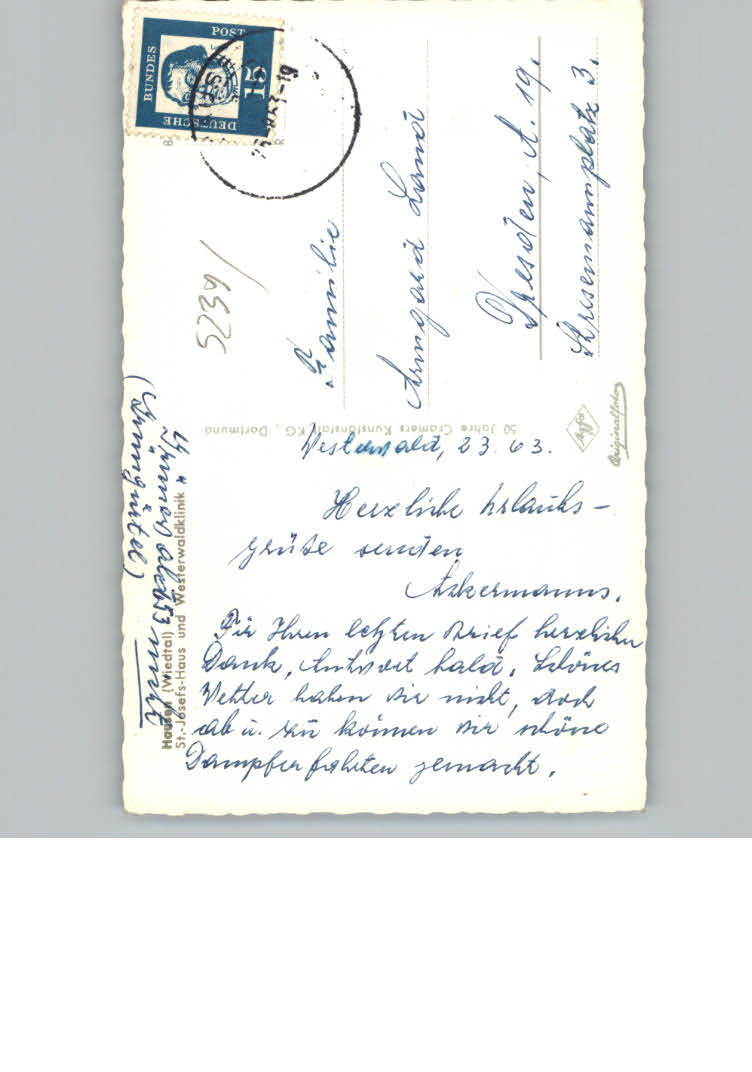 Westerwald, 23. 63.
Herzliche Urlaubs-
grüße senden
Ackermanns.
Für Ihren letzten Brief herzlichen
Dank, Antwort bald. Schönes
Wetter haben wir nicht, doch
ab u. zu können wir schöne
Dampferfahrten gemacht.
Hausen (Wiedtal)
St.-Josefs-Haus und Westerwaldklinik
50 Jahre Cramers Kunstanstalt KG., Dortmund
Agfa
Originalfoto
Familie
Armgard Land
Dresden, A. 19.
Stresemannplatz 3.
5239/
DEUTSCHE
BUNDES
POST
15